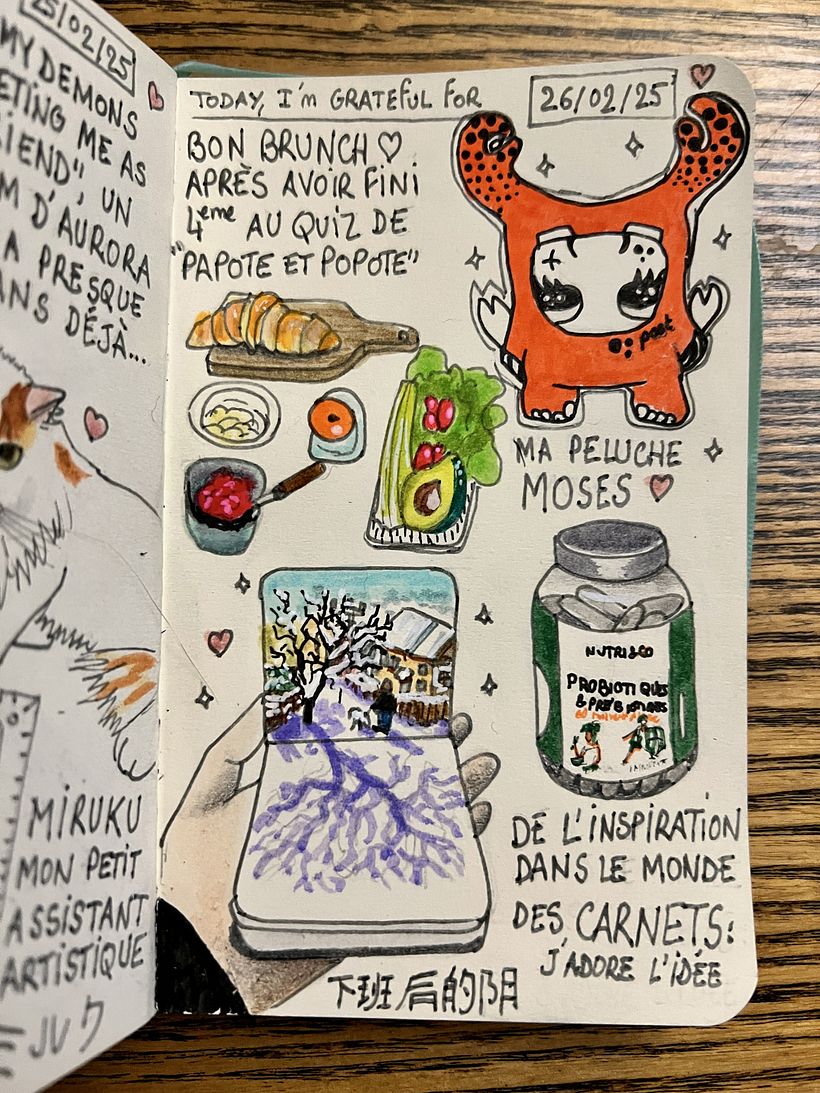 25/02/25
MY DEMONS
ETING ME AS
IEND", UN
M D'AURORA
A PRESQUE
ANS DÉJÀ...
MIRUKU
MON PETIT
ASSISTANT
ARTISTIQUE
TODAY, I'm GRATEFUL FOR
26/02/25
BON BRUNCH ♡
APRÈS AVOIR FINI
4eme AU QUIZ DE
"PAPOTE ET POPOTE"
MA PELUCHE
MOSES
NUTRI&CO
PROBIOTIQUES
DE L'INSPIRATION
DANS LE MONDE
DES CARNETS:
J'ADORE L'IDÉE
下班后的阴